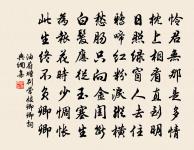 憐君無那是多情
枕上相看直到明
日照綠窗人去住
鴉啼紅粉淚縱橫
愁腸只向金閨斷
白髮應從玉塞生
為報花時少惆悵
此生終不負卿卿
府贈別營妓卿卿
調集